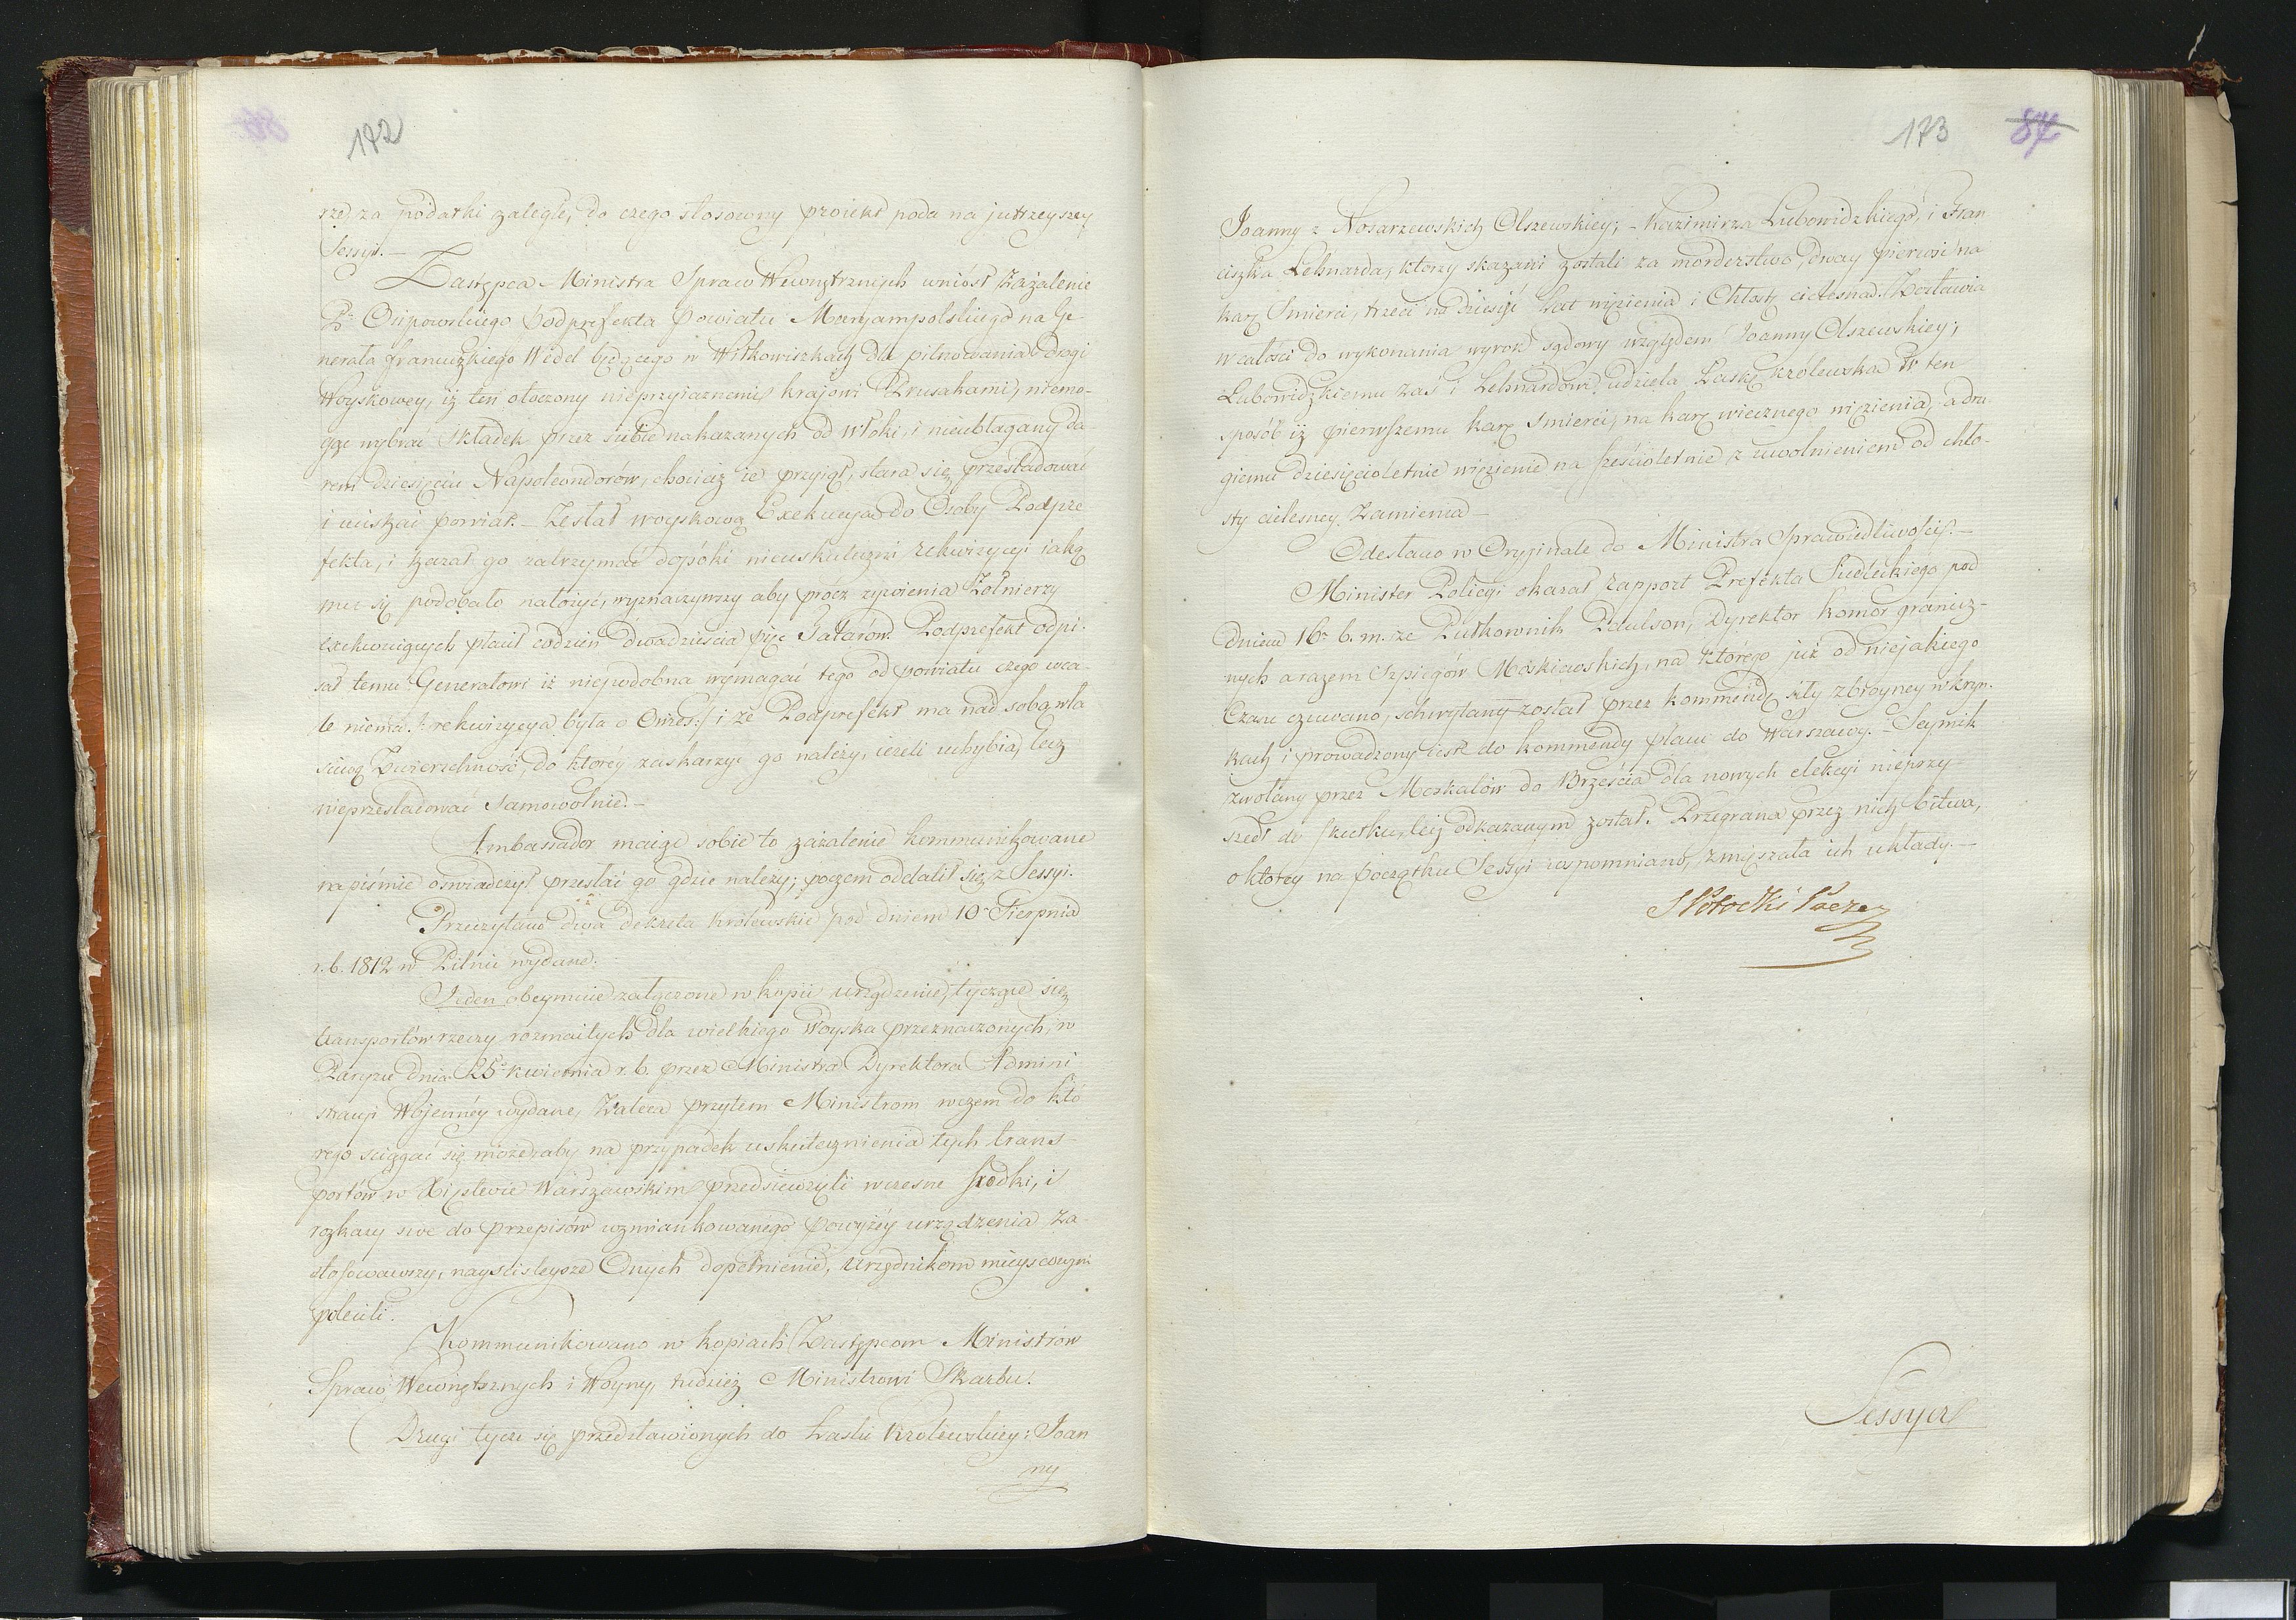 172
rze, za podatki zaległe, do czego stosowny proiekt poda na jutrzeyszey
Sessyi. —
Zastępca Ministra Spraw Wewnętrznych wniósł Zażalenie
P. Osipowskiego Podprefekta Powiatu Maryampolskiego na Ge-
nerała francuzkiego Wedel będącego w Wiłkowiszkach dla pilnowania drogi
Woyskowey, iż ten otoczony nieprzyiaznemi krajowi Prusakami, niemo-
gąc wybrać składek przez siebie nakazanych od włoki, i nieubłagany da-
rem dziesięciu Napoleondorów, chociaż ie przyjął, stara się prześladować
i uciskać powiat. – Zesłał woyskową Exekucyą do Osoby Podpre-
fekta, i kazał go zatrzymać dopóki nieuskuteczni rekwizycyi iaką
mu się podobało nałożyć, wyznaczywszy aby prócz żywienia Żołnierzy
exekwuiących płacił codzień dwadzieścia pięć Talarów. Podprefekt odpi-
sał temu Generałowi iż niepodobna wymagać tego od powiatu czego wca-
le niema /: rekwizycya była o Owies :/ i że Podprefekt ma nad sobą wła
ściwą Zwierzchność, do któréy zaskarżyć go należy, ieżeli uchybia, lecz
nieprześladować samowolnie. —
Ambassador maiąc sobie to zażalenie kommunikowane
na piśmie oświadczył przesłać go gdzie należy; poczem oddalił się z Sessyi.
Przeczytano dwa dekreta królewskie pod dniem 10. Sierpnia
r. b. 1812 w Pilnie wydane:
Jeden obeymuie załączone w kopii urządzenie, tyczące się
transportów rzeczy rozmaitych dla wielkiego Woyska przeznaczonych, w
Paryżu dnia 25. kwietnia r. b. przez Ministra Dyrektora Admini
stracyi Wojennéy wydane, Zaleca przytem Ministrom wczem do któ
rego ściągać się może, aby na przypadek uskutecznienia tych trans-
portów w Xięstwie Warszawskim przedsiewzięli wczesne środki, i
rozkazy swe do przepisów wzmiankowanego powyżéy urządzenia za-
stosowawszy, nayściśleysze Onych dopełnienie, urzędnikom mieyscowym
polecili.
Kommunikowano w kopiach Zastępcom Ministrów
Spraw Wewnętrznych i Woyny, tudzież Ministrowi Skarbu.
Drugi tycze się przedstawionych do Łaski Królewskiey: Joan
ny
173 87
Joanny z Nosarzewskich Olszewskiey; – Kazimierza Lubowidzkiego, i Fran
ciszka Lehnarda, którzy skazani zostali za morderstwo, dway pierwsi na
karę Śmierci, trzeci na dziesięć Lat więzienia i Chłostę cielesną. Zostawia
w całości do wykonania wyrok sądowy względem Joanny Olszewskiey;
Lubowidzkiemu zaś i Lehnardowi udziela Łaskę królewską w ten
sposób iż pierwszemu karę śmierci, na karę wiecznego więzienia, a dru-
giemu dziesięcioletnie więzienie na sześcioletnie z uwolnieniem od chło-
sty cielesney zamienia —
Odesłano w Oryginale do Ministra Sprawiedliwości. —
Minister Policyi okazał rapport Prefekta Siedleckiego pod
dniem 16. b. m. że Pułkownik Paulson, Dyrektor komor granicz-
nych a razem szpiegów Moskiewskich, na którego już od niejakiego
Czasu czuwano, schwytany został przez kommendę siły zbroyney w kryn-
kach i prowadzony iest do kommendy placu do Warszawy. – Seymik
zwołany przez Moskalów do Brześcia dla nowych elekcyi nieprzy-
szedł do skutku, leiz odkazanym został. Przegrana przez nich bitwa,
o ktorey na początku Sessyi wspomniano, zmięszała ich układy. —
S Potocki Prezes
Sessya